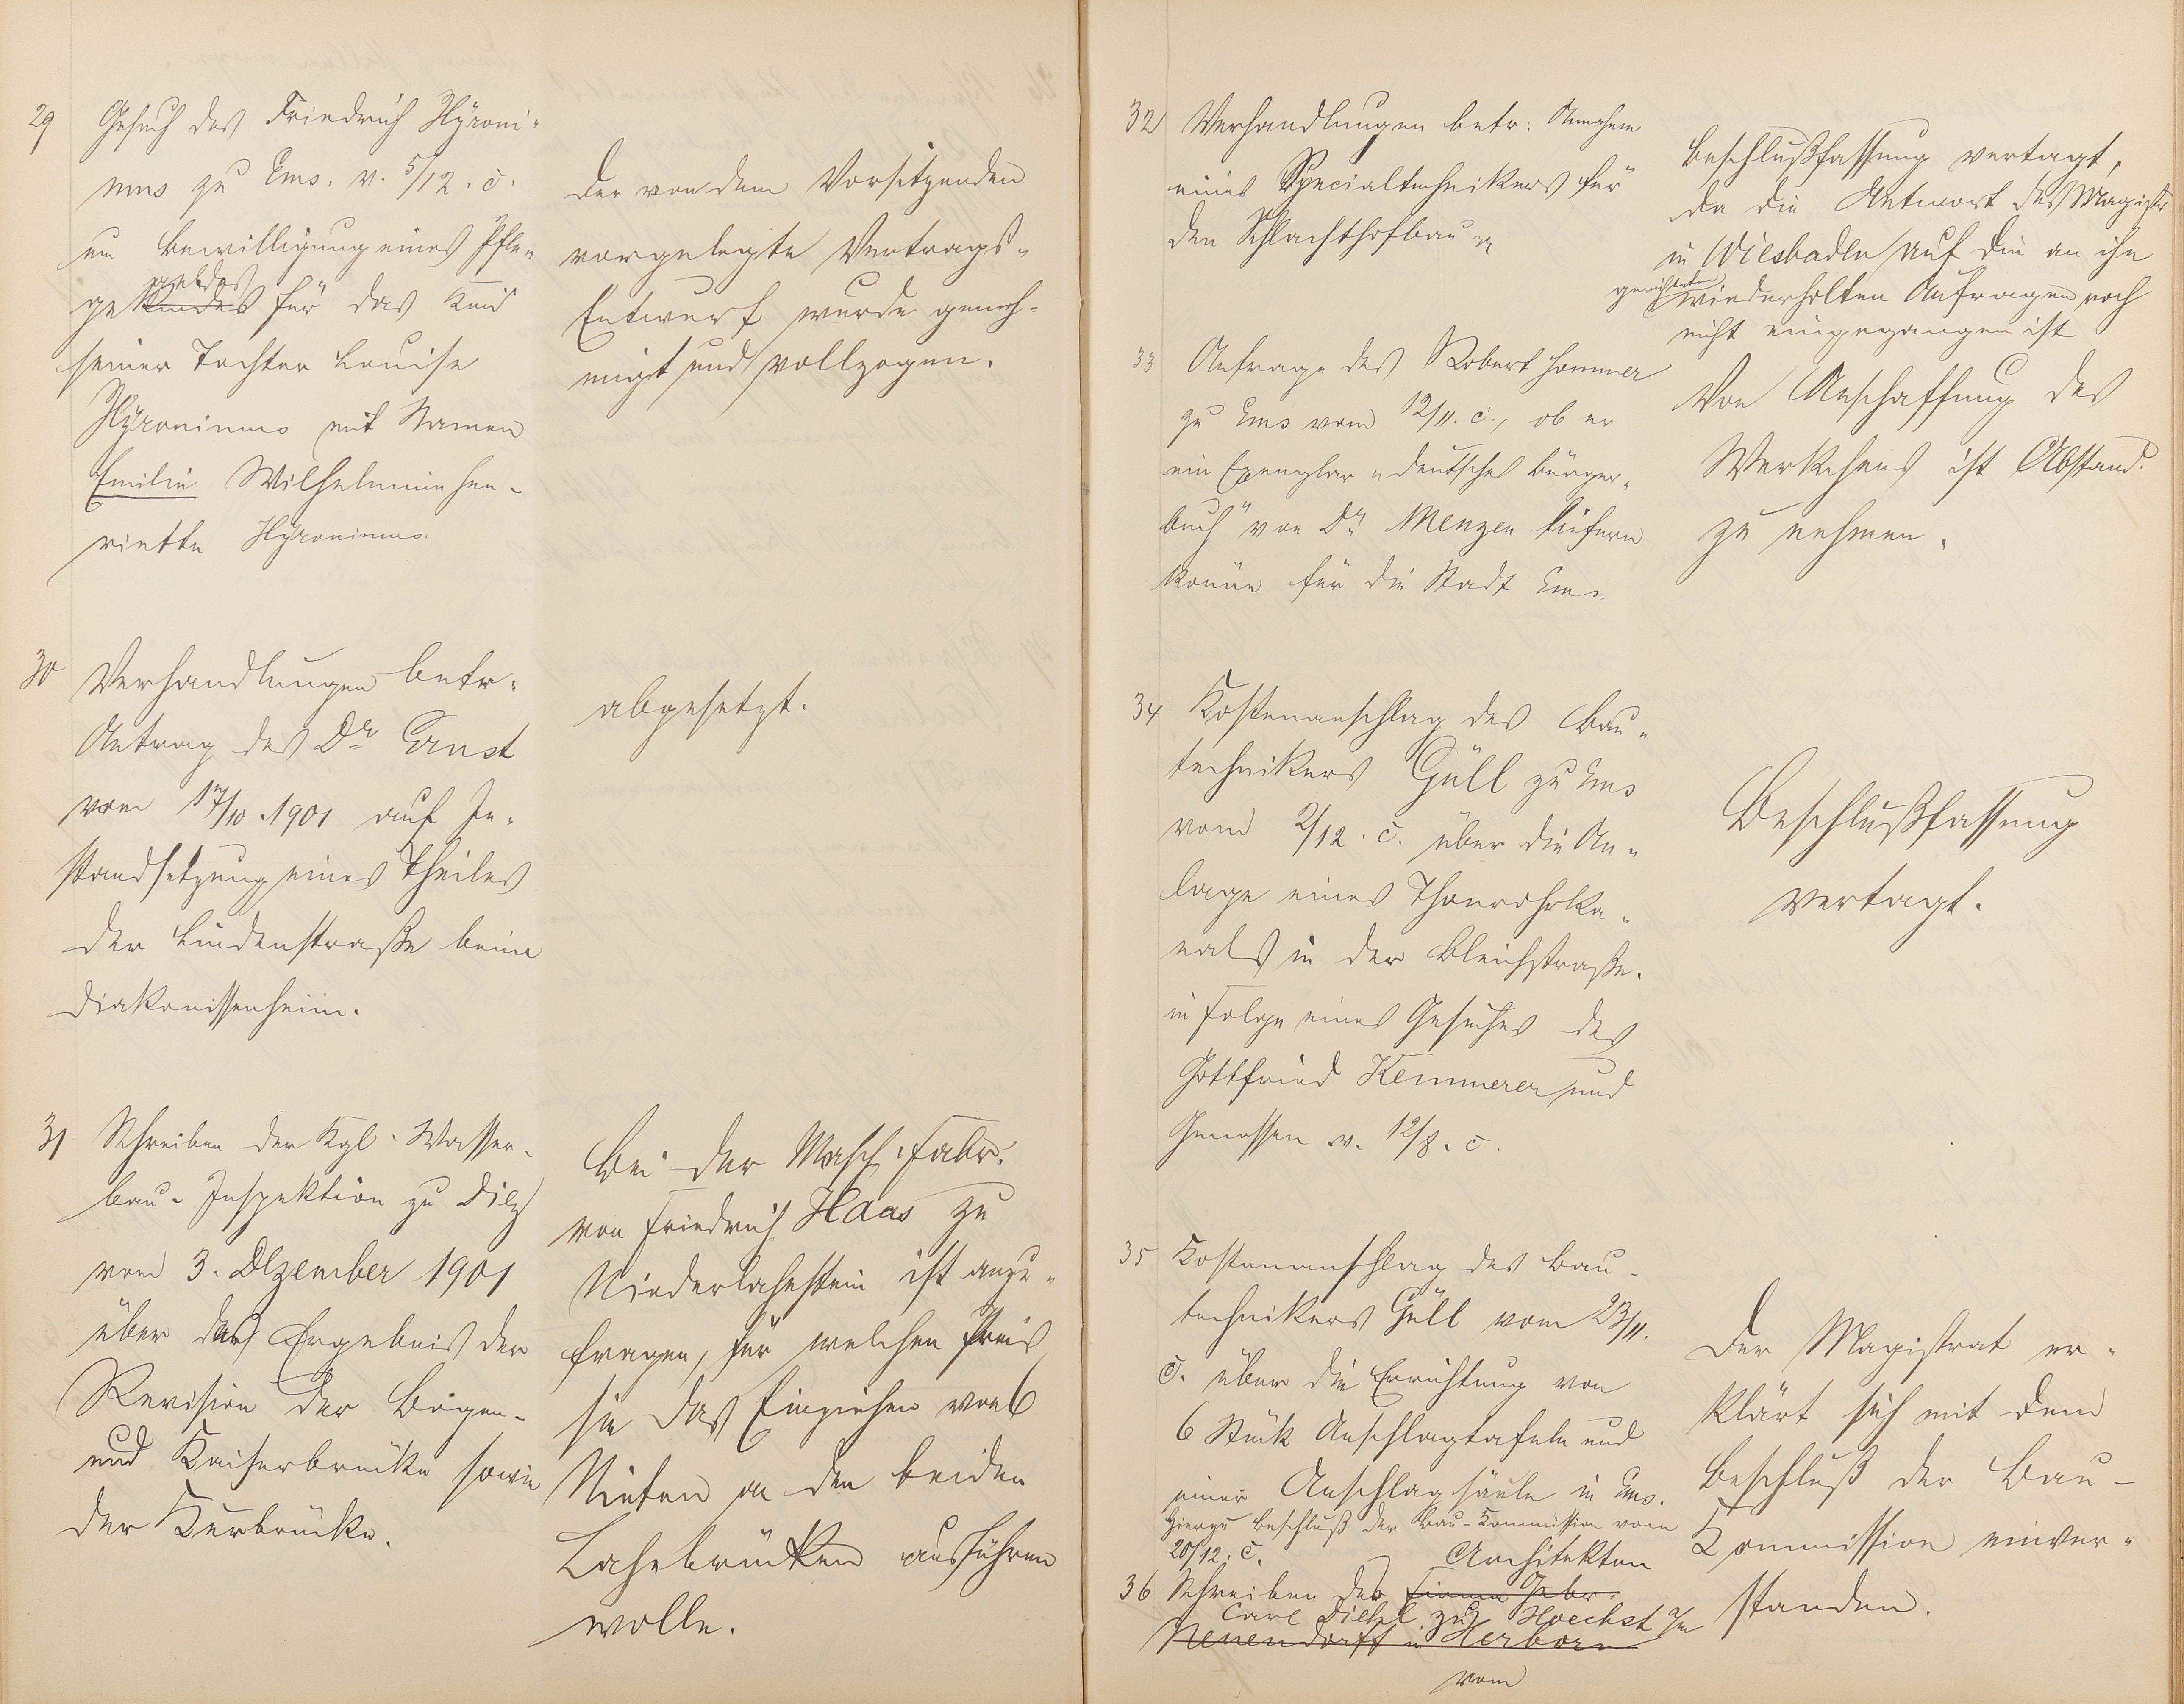 29 Gesuch des Friedrich Hyroni-
mus zu Ems. v. 5/12. c.
um Bewilligung eines Pfle-
geldes
gekindes für das Kind
seiner Tochter Louise
Hyronimus mit Namen
Emilie Wilhelmine Hen-
riette Hyronimus.
Der von dem Vorsitzenden
vorgelegte Vertrags-
Entwurf wurde geneh-
migt und vollzogen.
30 Verhandlungen betr.
Antrag des Dr Ernst
vom 17/10. 1901 auf In-
standsetzung eines Theiles
der Lindenstraße beim
Diakonissenheim.
abgesetzt.
31 Schreiben der Kgl. Wasser-
bau-Inspektion zu Diez
vom 3. Dezember 1901
über das Ergebnis der
Revision der Bogen-
und Kaiserbrücke sowie
der Kurbrücke.
Bei der Masch. Fabr.
von Friedrich Haas zu
Niederlahnstein ist anzu-
fragen, für welchen Preis
sie das Einziehen von 6
Nieten an den beiden
Lahnbrücken ausführen
wolle.
32 Verhandlungen betr. Annahme
eines Specialtechnikers für
den Schlachthofbau
Beschlußfassung vertagt,
da die Antwort des Magistr.
in Wiesbaden auf die an ihn
gerichteten
wiederholten Anfragen noch
nicht eingegangen ist
33 Anfrage des Robert Sommer
zu Ems vom 12/11. c., ob er
ein Exemplar "deutsches Bürger-
buch" von Dr Menzen liefern
könne für die Stadt Ems.
Von Anschaffung des
Werkchens ist Abstand
zu nehmen.
34 Kostenanschlag des Bau-
technikers Güll zu Ems
vom 2/12. c. über die An-
lage eines Thonrohrka-
nals in der Bleichstraße.
in Folge eines Gesuches des
Gottfried Kemmerer und
Genossen v. 12/8. c.
Beschlußfassung
vertagt.
35 Kostenanschlag des Bau-
technikers Güll vom 23/11.
c. über die Errichtung von
6 Stück Anschlagtafeln und
einer Anschlagsäule in Ems.
Hierzu Beschluß der Bau-Kommission vom
20/12. c.
Der Magistrat er-
klärt sich mit dem
Beschluß der Bau-
Kommission einver-
standen.
Architekten
36 Schreiben des Firma Gebr.
Carl Dietzl zu Hoechst a/m
Neuendorff in Herborn
vom